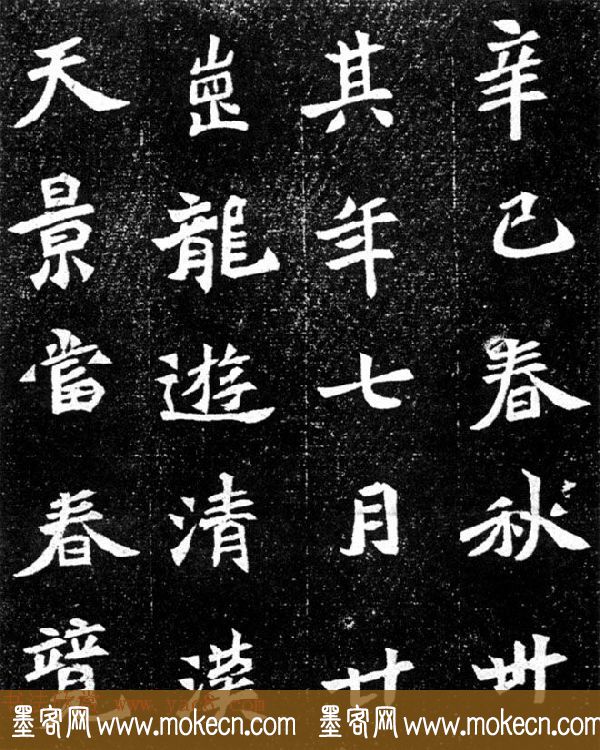 辛巳春秋卅
其年七月廿
龍遊清漢
天景當春
墨客网 www.mokecn.com 墨客网 www.mokecn.com